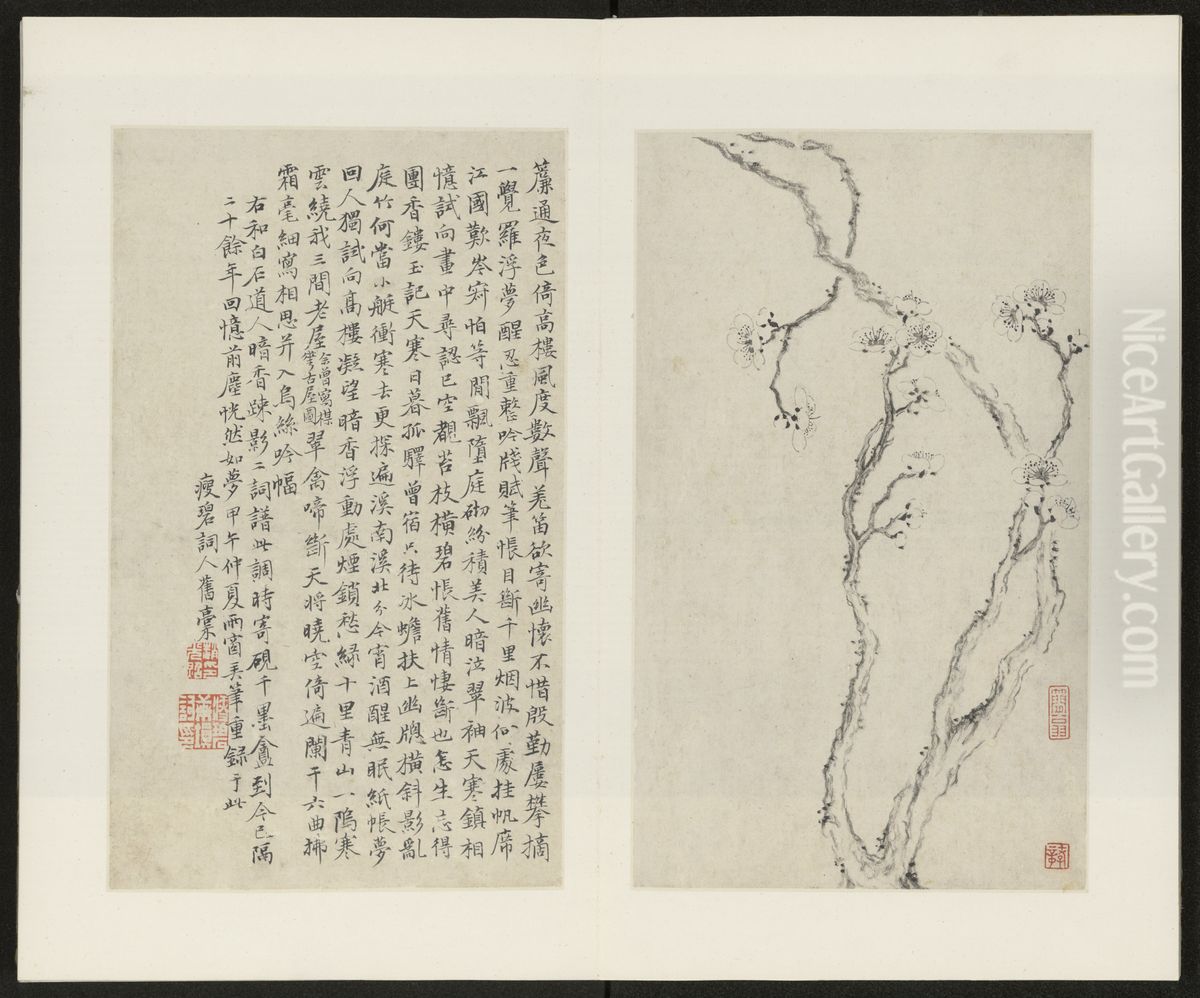 簾通夜色倚高樓風度數聲羌笛欲寄幽懷不惜殷勤屢攀摘
一覺羅浮夢醒忍重整吟牋賦筆悵目斷千里烟波何處挂帆席
江國歎岑寂怕等閒飄墮庭砌紛積美人暗泣翠袖天寒鎮相
憶試向畫中尋認已空覩苔枝橫碧悵舊情悽斷也怎生忘得
團香鏤玉記天寒日暮孤驛曾宿只待冰蟾扶上幽牕橫斜影亂
庭竹何當小艇衝寒去更探遍溪南溪北分今宵酒醒無眠紙帳夢
回人獨試向高樓凝望暗香浮動處煙鎖愁綠十里青山一隝寒
雲繞我三間老屋余曾寫楳
花古屋圖翠禽啼斷天將曉空倚遍闌干六曲拂
霜毫細寫相思并入烏絲吟幅
右和白石道人暗香疎影二詞譜此調時寄硯千墨盦到今已隔
二十餘年回憶前塵恍然如夢甲午仲夏雨窗呵筆重録于此
瘦碧詞人舊稾
NiceArtGallery.com